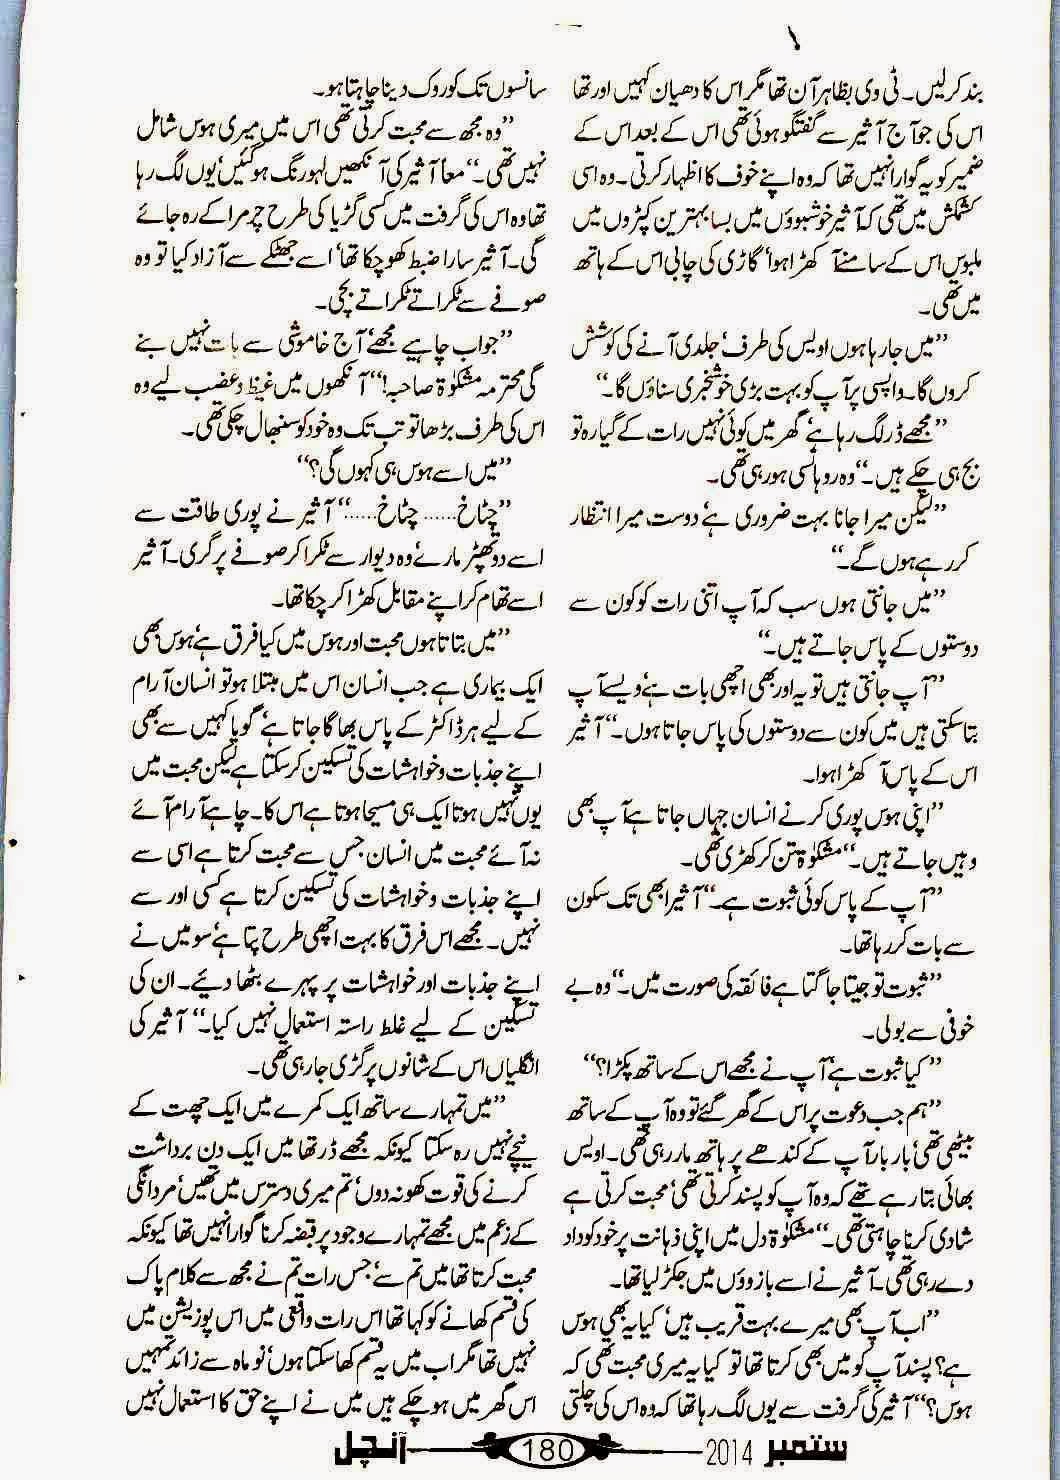 بند کرلیں۔ ٹی وی بظاہر آن تھا مگر اس کا دھیان کہیں اور تھا
اس کی جو آج آثیر سے گفتگو ہوئی تھی اس کے بعد اس کے
ضمیر کو یہ گوارا نہیں تھا کہ وہ اپنے خوف کا اظہار کرتی۔ وہ اسی
کشمکش میں تھی کہ آثیر خوشبوؤں میں بسا بہترین کپڑوں میں
ملبوس اس کے سامنے آ کھڑا ہوا‘ گاڑی کی چابی اس کے ہاتھ
میں تھی۔
”میں جا رہا ہوں اویس کی طرف‘ جلدی آنے کی کوشش
کروں گا۔ واپسی پر آپ کو بہت بڑی خوشخبری سناؤں گا۔“
”مجھے ڈر لگ رہا ہے‘ گھر میں کوئی نہیں رات کے گیارہ تو
بج ہی چکے ہیں۔“ وہ روہانسی ہورہی تھی۔
”لیکن میرا جانا بہت ضروری ہے‘ دوست میرا انتظار
کررہے ہوں گے۔“
”میں جانتی ہوں سب کہ آپ اتنی رات کو کون سے
دوستوں کے پاس جاتے ہیں۔“
”آپ جانتی ہیں تو یہ اور بھی اچھی بات ہے‘ ویسے آپ
بتا سکتی ہیں میں کون سے دوستوں کی پاس جاتا ہوں۔“ آثیر
اس کے پاس آ کھڑا ہوا۔
”اپنی ہوس پوری کرنے انسان جہاں جاتا ہے آپ بھی
وہیں جاتے ہیں۔“ مشکوٰۃ تن کر کھڑی تھی۔
”آپ کے پاس کوئی ثبوت ہے۔“ آثیر ابھی تک سکون
سے بات کررہا تھا۔
”ثبوت تو جیتا جاگتا ہے فائقہ کی صورت میں۔“ وہ بے
خوفی سے بولی۔
”کیا ثبوت ہے‘ آپ نے مجھے اس کے ساتھ پکڑا؟“
”ہم جب دعوت پر اس کے گھر گئے تو وہ آپ کے ساتھ
بیٹھی تھی‘ بار بار آپ کے کندھے پر ہاتھ مار رہی تھی۔ اویس
بھائی بتا رہے تھے کہ وہ آپ کو پسند کرتی تھی‘ محبت کرتی ہے
شادی کرنا چاہتی تھی۔“ مشکوٰۃ دل میں اپنی ذہانت پر خود کو داد
دے رہی تھی۔ آثیر نے اسے بازوؤں میں جکڑ لیا تھا۔
”اب آپ بھی میرے بہت قریب ہیں‘ کیا یہ بھی ہوس
ہے؟ پسند آپ کو میں بھی کرتا تھا تو کیا یہ میری محبت تھی کہ
ہوس؟“ آثیر کی گرفت سے یوں لگ رہا تھا کہ وہ اس کی چلتی
سانسوں تک کو روک دینا چاہتا ہو۔
”وہ مجھ سے محبت کرتی تھی اس میں میری ہوس شامل
نہیں تھی۔“ معاً آثیر کی آنکھیں لہو رنگ ہوگئیں‘ یوں لگ رہا
تھا وہ اس کی گرفت میں کسی گڑیا کی طرح چرمرا کے رہ جائے
گی۔ آثیر سارا ضبط کھو چکا تھا‘ اسے جھٹکے سے آزاد کیا تو وہ
صوفے سے ٹکراتے ٹکراتے بچی۔
”جواب چاہیے مجھے‘ آج خاموشی سے بات نہیں بنے
گی محترمہ مشکوٰۃ صاحبہ!“ آنکھوں میں غیظ و غضب لیے وہ
اس کی طرف بڑھا تو تب تک وہ خود کو سنبھال چکی تھی۔
”میں اسے ہوس ہی کہوں گی؟“
”چٹاخ…… چٹاخ……“ آثیر نے پوری طاقت سے
اسے دو تھپڑ مارے‘ وہ دیوار سے ٹکرا کر صوفے پر گری۔ آثیر
اسے تھام کر اپنے مقابل کھڑا کر چکا تھا۔
”میں بتاتا ہوں محبت اور ہوس میں کیا فرق ہے‘ ہوس بھی
ایک بیماری ہے جب انسان اس میں مبتلا ہو تو انسان آرام
کے لیے ہر ڈاکٹر کے پاس بھاگا جاتا ہے‘ گویا کہیں سے بھی
اپنے جذبات و خواہشات کی تسکین کرسکتا ہے لیکن محبت میں
یوں نہیں ہوتا ایک ہی مسیحا ہوتا ہے اس کا۔ چاہے آرام آئے
نہ آئے محبت میں انسان جس سے محبت کرتا ہے اسی سے
اپنے جذبات و خواہشات کی تسکین کرتا ہے کسی اور سے
نہیں۔ مجھے اس فرق کا بہت اچھی طرح پتا ہے‘ سو میں نے
اپنے جذبات اور خواہشات پر پہرے بٹھا دیئے۔ ان کی
تسکین کے لیے غلط راستہ استعمال نہیں کیا۔“ آثیر کی
انگلیاں اس کے شانوں پر گڑی جارہی تھی۔
”میں تمہارے ساتھ ایک کمرے میں ایک چھت کے
نیچے نہیں رہ سکتا کیونکہ مجھے ڈر تھا میں ایک دن برداشت
کرنے کی قوت کھو نہ دوں‘ تم میری دسترس میں تھیں‘ مردانگی
کے زعم میں مجھے تمہارے وجود پر قبضہ کرنا گوارا نہیں تھا کیونکہ
محبت کرتا تھا میں تم سے‘ جس رات تم نے مجھ سے کلام پاک
کی قسم کھانے کو کہا تھا اس رات واقعی میں اس پوزیشن میں
نہیں تھا مگر اب میں یہ قسم کھا سکتا ہوں‘ نو ماہ سے زائد تمہیں
اس گھر میں ہو چکے ہیں میں نے اپنے حق کا استعمال نہیں
ستمبر 2014 180 آنچل